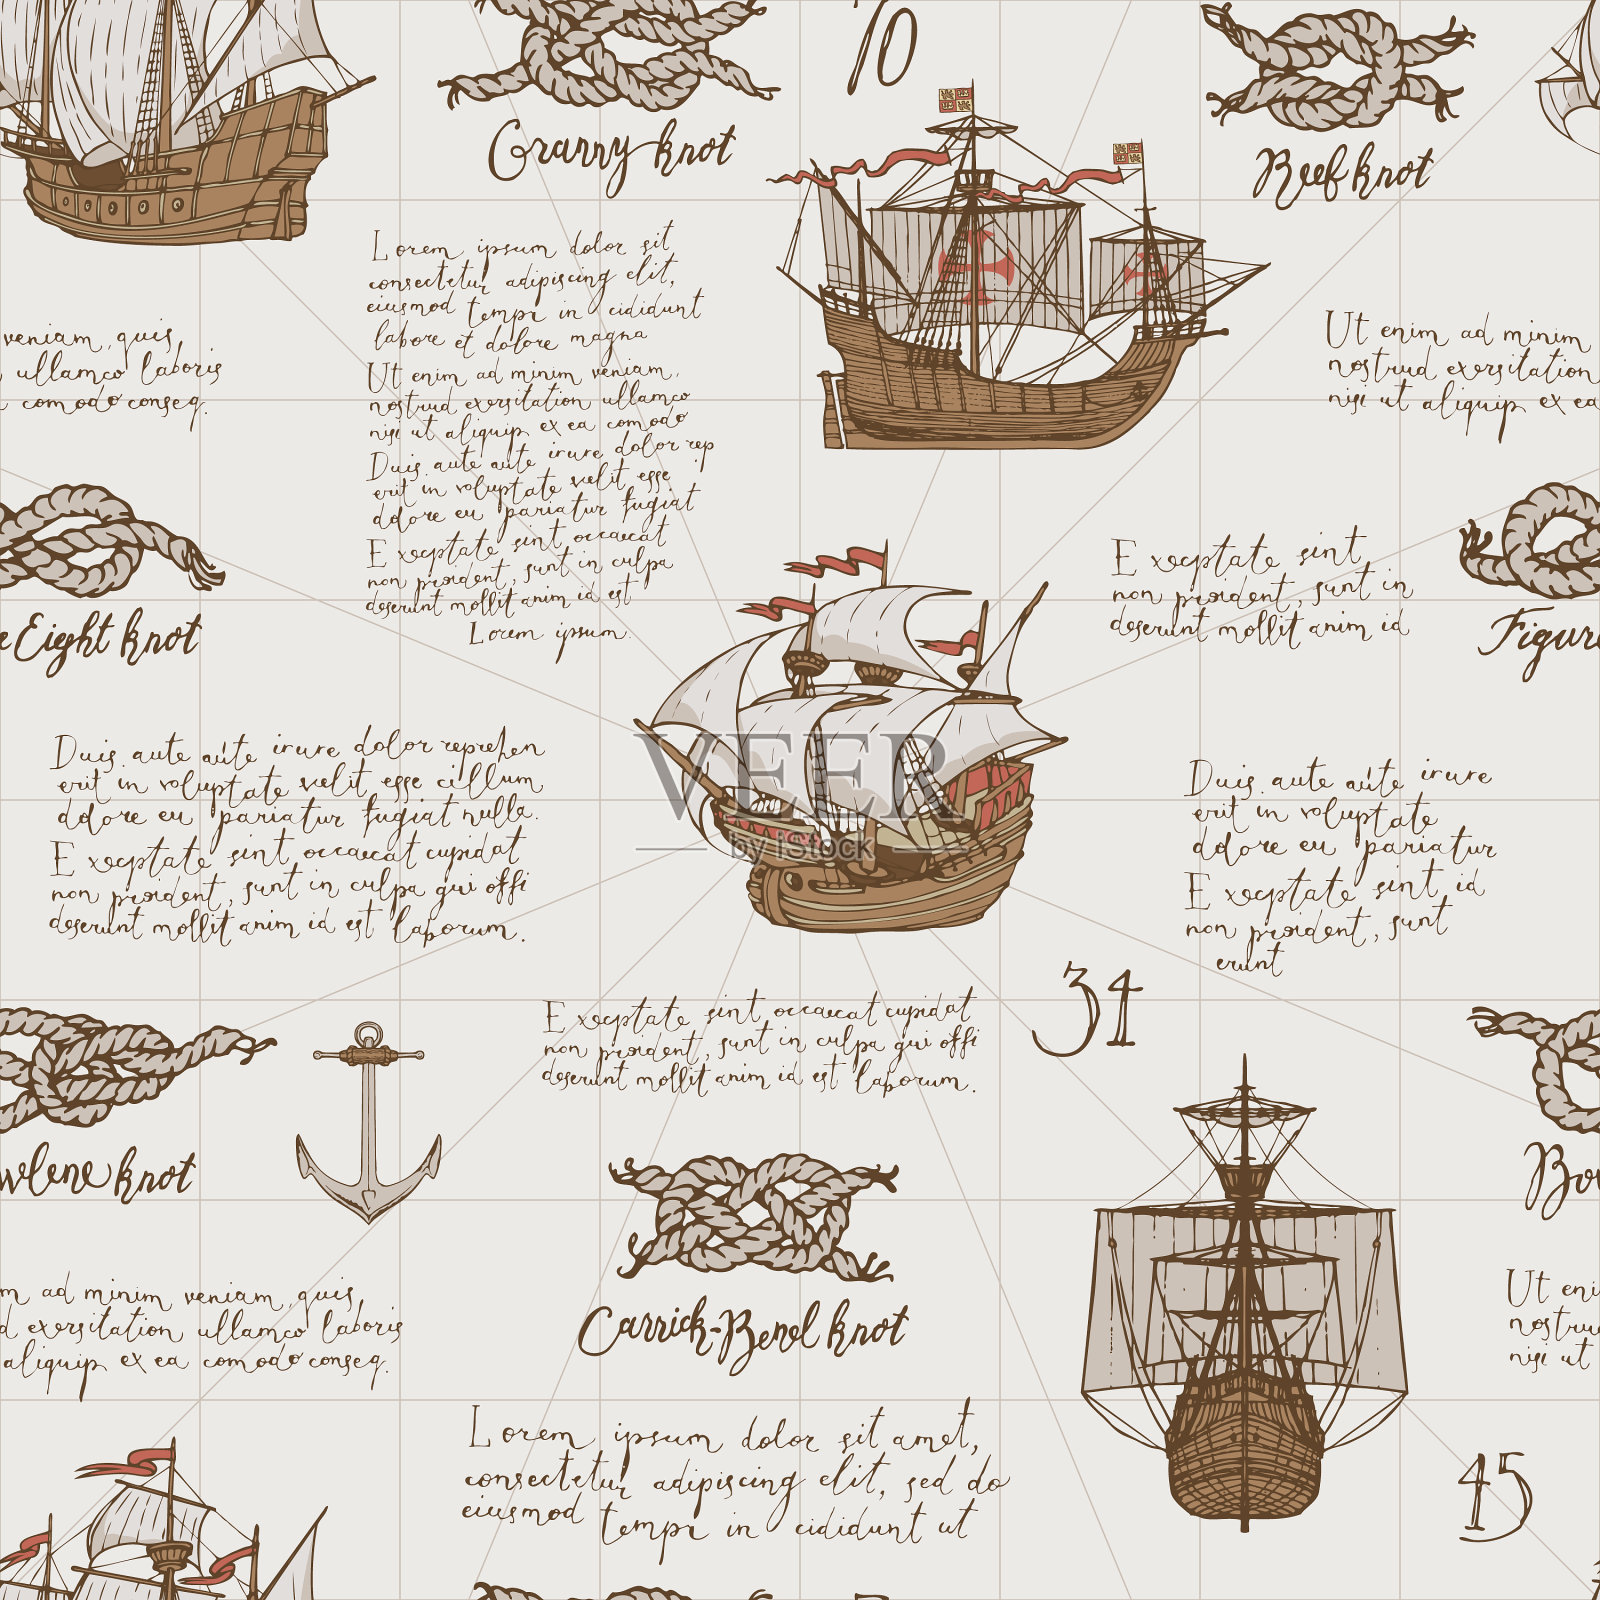 10
Granny knot
Reef knot
Lorem ipsum dolor sit
consectetur adipiscing elit,
eiusmod tempr in cididunt
labore et dolore magna
Ut enim ad minim veniam,
nostrud exersitation ullamco
nisi ut aliquip ex ea comodo
Duis aute aute irure dolor rep
erit in voluptate velit esse
dolore eu pariatur fugiat
Exceptate sint occaecat
non proident, sunt in culpa
deserunt mollit anim id est
Lorem ipsum.
veniam, quis,
ullamco laboris
comodo conseq.
Ut enim ad minim
nostrud exersitation
nisi ut aliquip ex ea
Eight knot
Exceptate sint
non proident, sunt in
deserunt mollit anim id
Figure
Duis aute aute irure dolor reprehen
erit in voluptate velit esse cillum
dolore eu pariatur fugiat nulla.
Excеptate sint occaecat cupidat
non proident, sunt in culpa qui offi
deserunt mollit anim id est laborum.
VEER
by iStock
Duis aute aute irure
erit in voluptate
dolore eu pariatur
Exceptate sint id
non proident, sunt
erunt
34
Exceptate sint occaecat cupidat
non proident, sunt in culpa qui offi
deserunt mollit anim id est laborum.
wlene knot
Bow
Carrick-Benel knot
m ad minim veniam, quis,
d exersitation ullamco laboris
aliquip ex ea comodo conseq.
Ut eni
nostru
nisi ut
Lorem ipsum dolor sit amet,
consectetur adipiscing elit, sed do
eiusmod tempr in cididunt ut
45